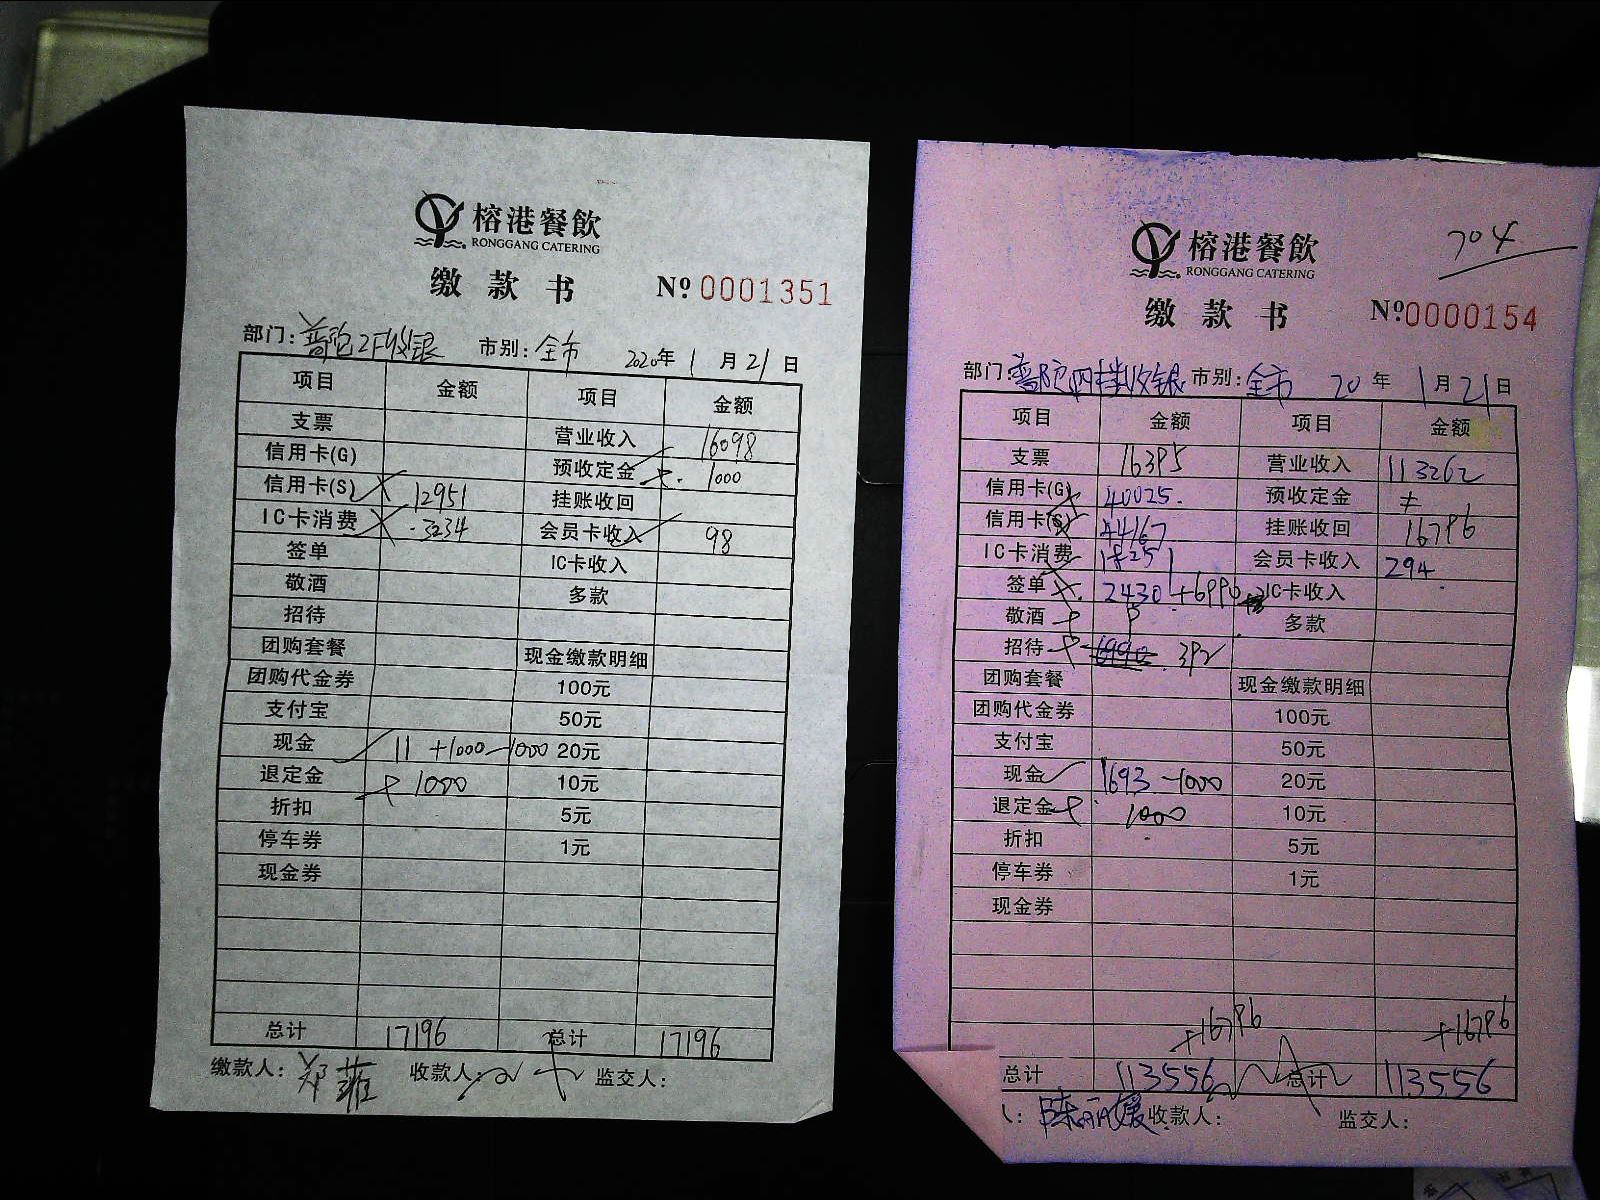 榕港餐飲
RONGGANG CATERING
缴款书 № 0001351
部门：普陀2F收银 市别：全市 2020年1月21日
项目 金额 项目 金额
支票 营业收入 16098
信用卡(G) 预收定金 1000
信用卡(S) 12951 挂账收回
IC卡消费 3234 会员卡收入 98
签单 IC卡收入
敬酒 多款
招待
团购套餐 现金缴款明细
团购代金券 100元
支付宝 50元
现金 11 +1000-1000 20元
退定金 1000 10元
折扣 5元
停车券 1元
现金券
总计 17196 总计 17196
缴款人： 郑菲 收款人： 监交人：
704
榕港餐飲
RONGGANG CATERING
缴款书 №0000154
部门：普陀四楼收银 市别：全市 20年1月21日
项目 金额 项目 金额
支票 16395 营业收入 113262
信用卡(G) 40025 预收定金
信用卡(S) 44167 挂账收回 16796
IC卡消费 会员卡收入 294
签单 2430 +6990 IC卡收入
敬酒 多款
招待 392
团购套餐 现金缴款明细
团购代金券 100元
支付宝 50元
现金 1693 -1000 20元
退定金 1000 10元
折扣 5元
停车券 1元
现金券
+16796 +16796
总计 113556 总计 113556
人： 陈丽媛 收款人： 监交人：